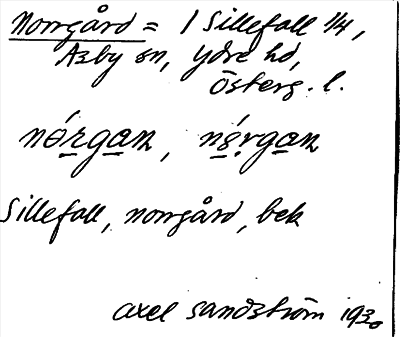 Norrgård = 1 Sillefall 1/4,
Asby sn, Ydre hd,
Österg. l.
nórgan, nórgan
Sillefall, norrgård, bek
Axel Sandström 1930